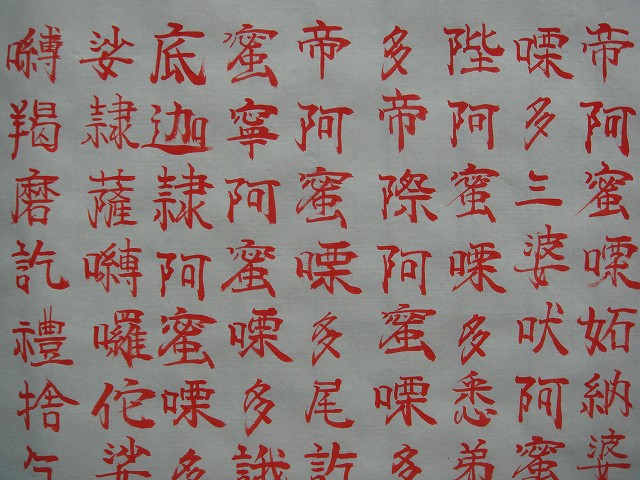 帝阿蜜嘌妬納婆
嘌多三婆吠阿蜜
陛阿蜜嘌多悉弟
多帝際阿蜜嘌多
帝阿蜜嘌多尾訖
蜜寧阿蜜嘌多誐
底迦隷阿蜜嘌多
娑隷薩嚩囉佗娑
嚩羯磨訖禮捨